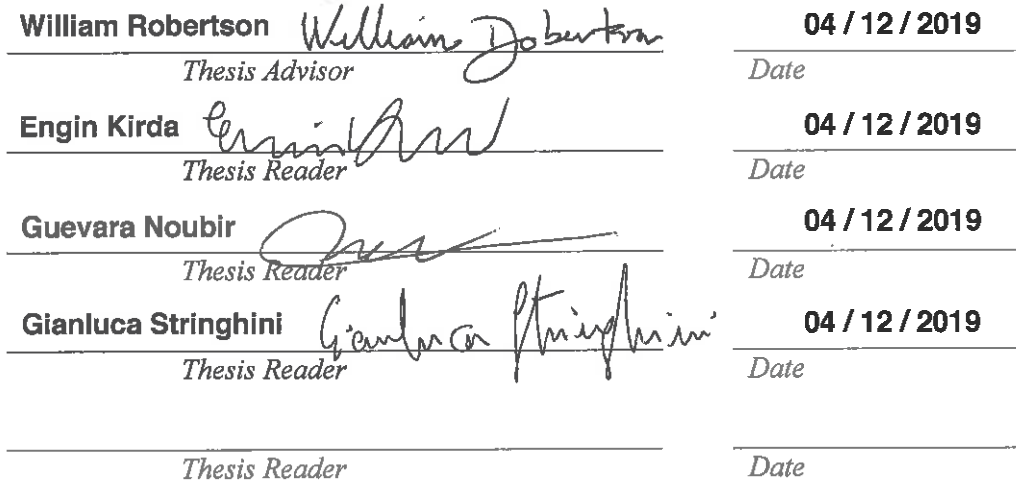 William Robertson William Robertson 04 / 12 / 2019
Thesis Advisor Date
Engin Kirda Engin Kirda 04 / 12 / 2019
Thesis Reader Date
Guevara Noubir 04 / 12 / 2019
Thesis Reader Date
Gianluca Stringhini Gianluca Stringhini 04 / 12 / 2019
Thesis Reader Date
Thesis Reader Date